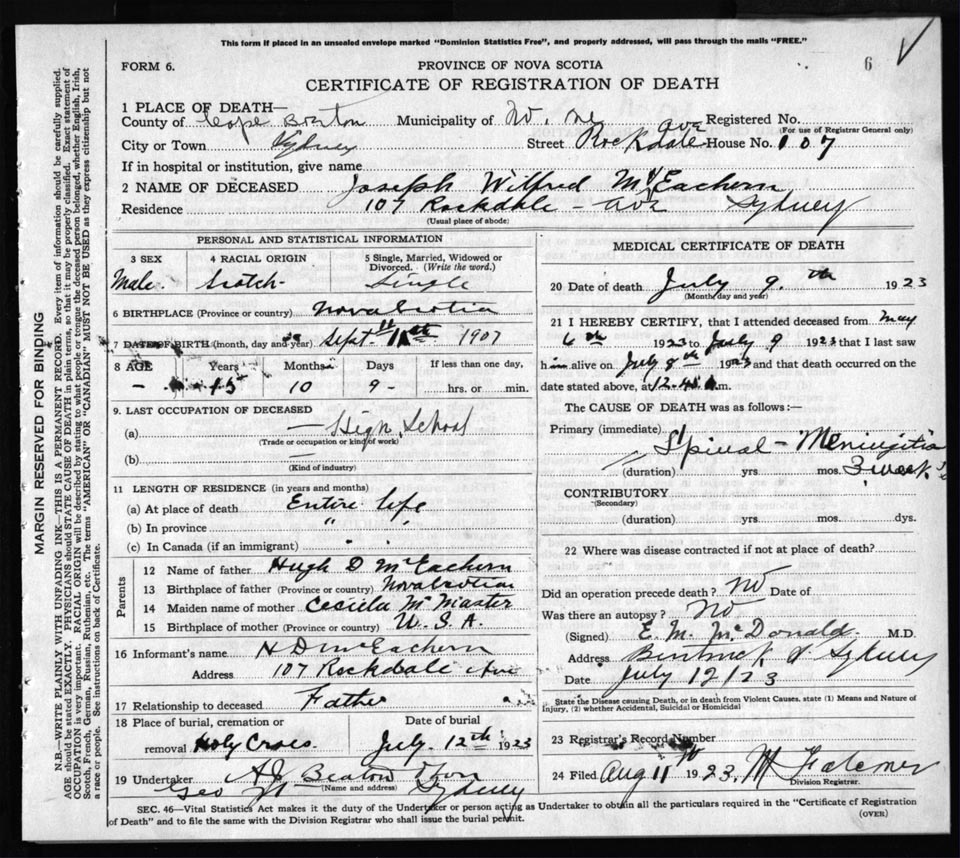 This form if placed in an unsealed envelope marked "Dominion Statistics Free", and properly addressed, will pass through the mails "FREE."
FORM 6.
PROVINCE OF NOVA SCOTIA
6
CERTIFICATE OF REGISTRATION OF DEATH
1 PLACE OF DEATH—
County of Cape Breton Municipality of Registered No.
(For use of Registrar General only)
City or Town Sydney Street Rockdale Ave House No. 107
If in hospital or institution, give name
2 NAME OF DECEASED Joseph Wilfred McEachern
Residence 107 Rockdale - Ave Sydney
(Usual place of abode)
PERSONAL AND STATISTICAL INFORMATION
3 SEX 4 RACIAL ORIGIN 5 Single, Married, Widowed or Divorced. (Write the word.)
Male. Scotch- Single
6 BIRTHPLACE (Province or country) Nova Scotia
7 DATE OF BIRTH (month, day and year) Sept. 1907
8 AGE Years Months Days If less than one day,
- 15 10 9 - hrs. or min.
9. LAST OCCUPATION OF DECEASED
(a) — High School
(Trade or occupation or kind of work)
(b) —
(Kind of industry)
11 LENGTH OF RESIDENCE (in years and months)
(a) At place of death Entire life
(b) In province " "
(c) In Canada (if an immigrant)
Parents
12 Name of father Hugh D McEachern
13 Birthplace of father (Province or country) Nova Scotia
14 Maiden name of mother Cecilia McMaster
15 Birthplace of mother (Province or country) U. S. A.
16 Informant's name H D McEachern
Address 107 Rockdale Ave
17 Relationship to deceased Father
18 Place of burial, cremation or Date of burial
removal Holy Cross. July. 12th 1923
19 Undertaker A J Beaton
(Name and address) Sydney
MEDICAL CERTIFICATE OF DEATH
20 Date of death July 9th 1923
(Month day and year)
21 I HEREBY CERTIFY, that I attended deceased from May
6th 1923 to July 9 1923 that I last saw
him alive on July 8th 1923 and that death occurred on the
date stated above, at 12.45 m.
The CAUSE OF DEATH was as follows:—
Primary (immediate)
Spinal - Meningitis
(duration) yrs. mos. 3 weeks
CONTRIBUTORY
(Secondary)
(duration) yrs. mos. dys.
22 Where was disease contracted if not at place of death?
Did an operation precede death? No Date of
Was there an autopsy? No
(Signed) E. M. McDonald. M.D.
Address Sydney
Date July 12/23
State the Disease causing Death, or in death from Violent Causes, state (1) Means and Nature of Injury, (2) whether Accidental, Suicidal or Homicidal
23 Registrar's Record Number
24 Filed Aug 11th 1923.
Division Registrar.
SEC. 46—Vital Statistics Act makes it the duty of the Undertaker or person acting as Undertaker to obtain all the particulars required in the "Certificate of Registration
of Death" and to file the same with the Division Registrar who shall issue the burial permit.
(OVER)
MARGIN RESERVED FOR BINDING
N.B.—WRITE PLAINLY WITH UNFADING INK—THIS IS A PERMANENT RECORD. Every item of information should be carefully supplied.
AGE should be stated EXACTLY. PHYSICIANS should STATE CAUSE OF DEATH in plain terms, so that it may be properly classified. Exact statement of
OCCUPATION is very important. RACIAL ORIGIN will be described by stating to what people or tongue the deceased person belonged, whether English, Irish,
Scotch, French, German, Russian, Ruthenian, etc. The terms "AMERICAN" or "CANADIAN" MUST NOT BE USED as they express citizenship but not
a race or people. See instructions on back of Certificate.